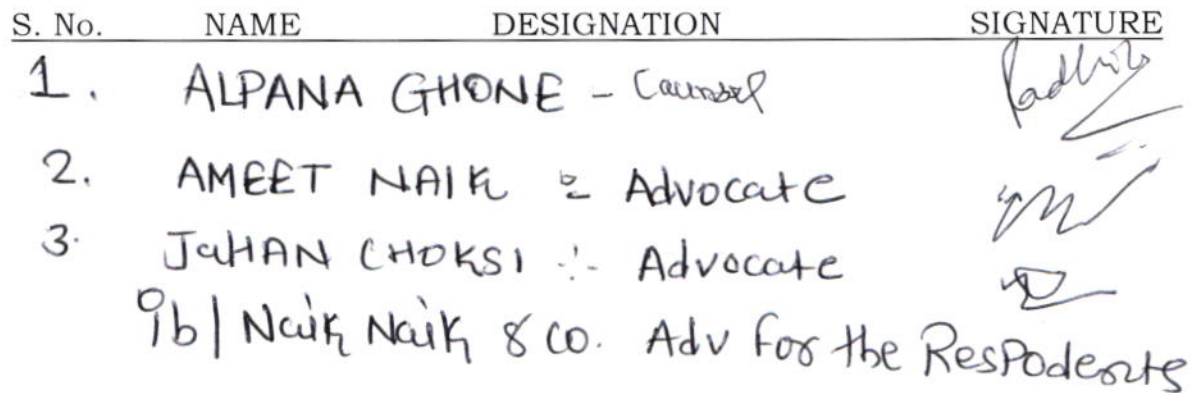 S. No. NAME DESIGNATION SIGNATURE
1. ALPANA GHONE - Counsel
2. AMEET NAIK : Advocate
3. JaHAN CHOKSI :- Advocate
ib| Naik Naik & Co. Adv for the ResPodents